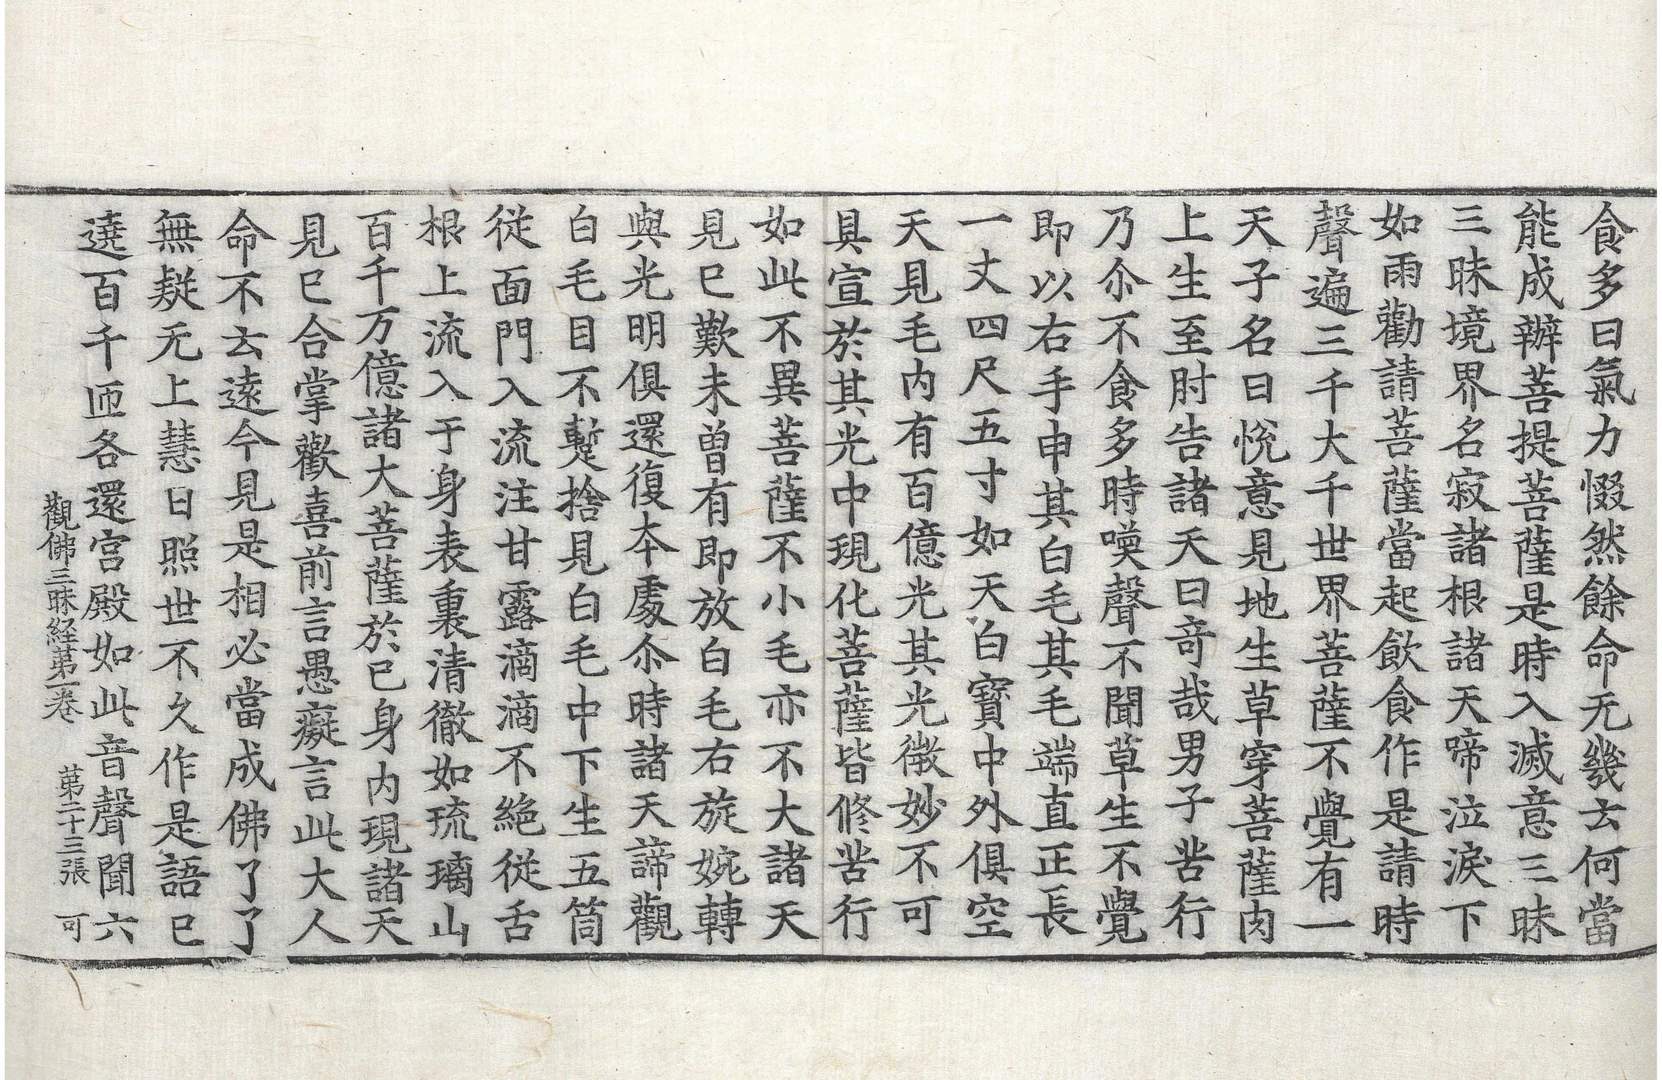 食多曰氣力惙然餘命无幾云何當
能成辦菩提菩薩是時入滅意三昧
三昧境界名寂諸根諸天啼泣淚下
如雨勸請菩薩當起飲食作是請時
聲遍三千大千世界菩薩不覺有一
天子名曰悅意見地生草穿菩薩肉
上生至肘告諸天曰奇哉男子苦行
乃尒不食多時喚聲不聞草生不覺
即以右手申其白毛其毛端直正長
一丈四尺五寸如天白寶中外俱空
天見毛内有百億光其光微妙不可
具宣於其光中現化菩薩皆修苦行
如此不異菩薩不小毛亦不大諸天
見已歎未曾有即放白毛右旋婉轉
與光明俱還復本處尒時諸天諦觀
白毛目不蹔捨見白毛中下生五筒
從面門入流注甘露滴滴不絶從舌
根上流入于身表裏清徹如琉璃山
百千万億諸大菩薩於已身内現諸天
見已合掌歡喜前言愚癡言此大人
命不云遠今見是相必當成佛了了
無疑无上慧日照世不久作是語已
遶百千匝各還宮殿如此音聲聞六
觀佛三昧経第一卷 第二十三張 可